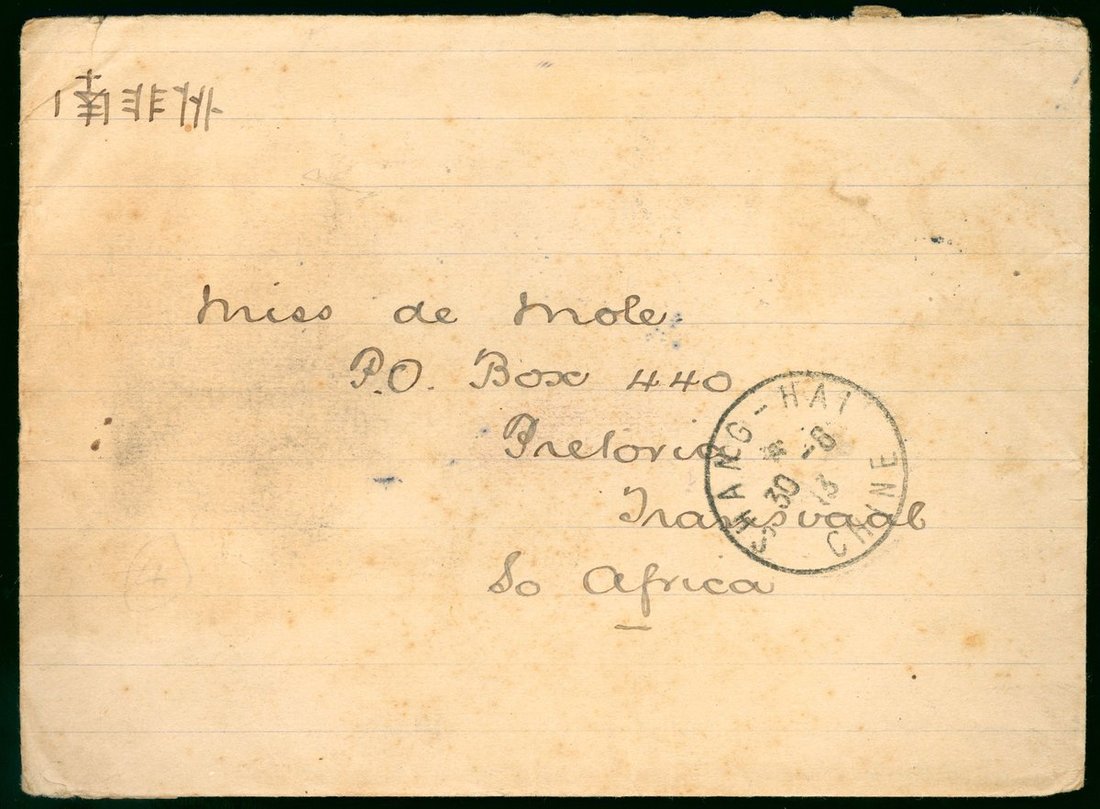 南非洲
Miss de Mole
P.O. Box 440
Pretoria
Transvaal
So Africa
SHANG-HAI
* 30 -8 13
CHINE